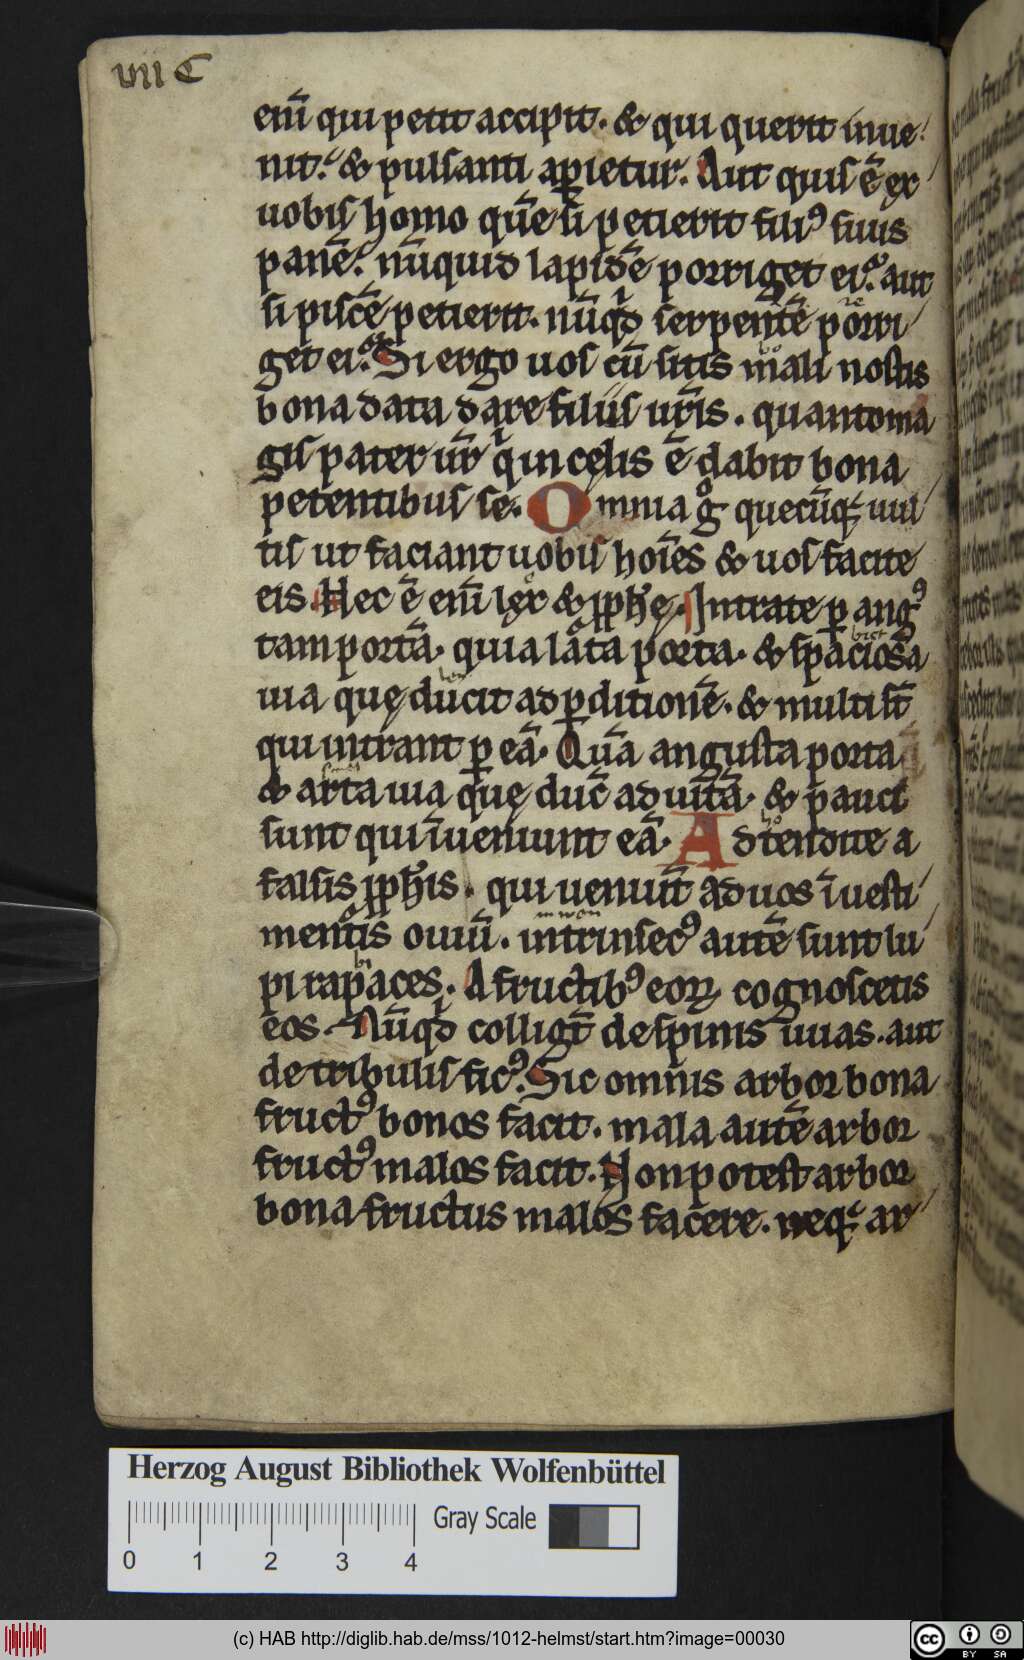 iiii C
eni̅ qui petit accipit. & qui querit inue
nit. & pulsanti ap̲ietur. Aut quis e̅ ex
uobis homo que̅ si petierit filiꝰ suus
pane̅. nu̅quid lapide̅ porriget ei. aut
si pisce̅ petierit. nu̅qd serpente̅ porri
get ei. Si ergo uos cu̅ sitis mali nostis
bona data dare filiis ur̅is. quanto ma
gis pater ur̅ q in celis e̅ dabit bona
petentibus se. Omnia g̊ quecu̅q; uul
tis ut faciant uobis hoi̅es & uos facite
eis. Hec e̅ eni̅ lex & ꝓphe. Intrate ꝑ angꝰ
tam porta̅. quia lata porta. & spaciosa
uia quę ducit ad ꝑditione̅. & multi st̅
qui intrant ꝑ ea̅. Qua̅ angusta porta
& arta uia quę duc̅ ad uita̅. & pauci
sunt qui i̅ueniunt ea̅. Adtendite a
falsis ꝓph̅is. qui ueniu̅t ad uos i̅ uesti
mentis ouiu̅. intrinsecꝰ aute̅ sunt lu
pi rapaces. A fructibꝰ eoꝝ cognoscetis
eos. Nu̅qd colligt̅ de spinis uuas. aut
de tribulis ficꝰ. Sic omnis arbor bona
fructꝰ bonos facit. mala aute̅ arbor
fructꝰ malos facit. Non potest arbor
bona fructus malos facere. neq; ar
Herzog August Bibliothek Wolfenbüttel
Gray Scale
0 1 2 3 4
(c) HAB http://diglib.hab.de/mss/1012-helmst/start.htm?image=00030
cc BY SA